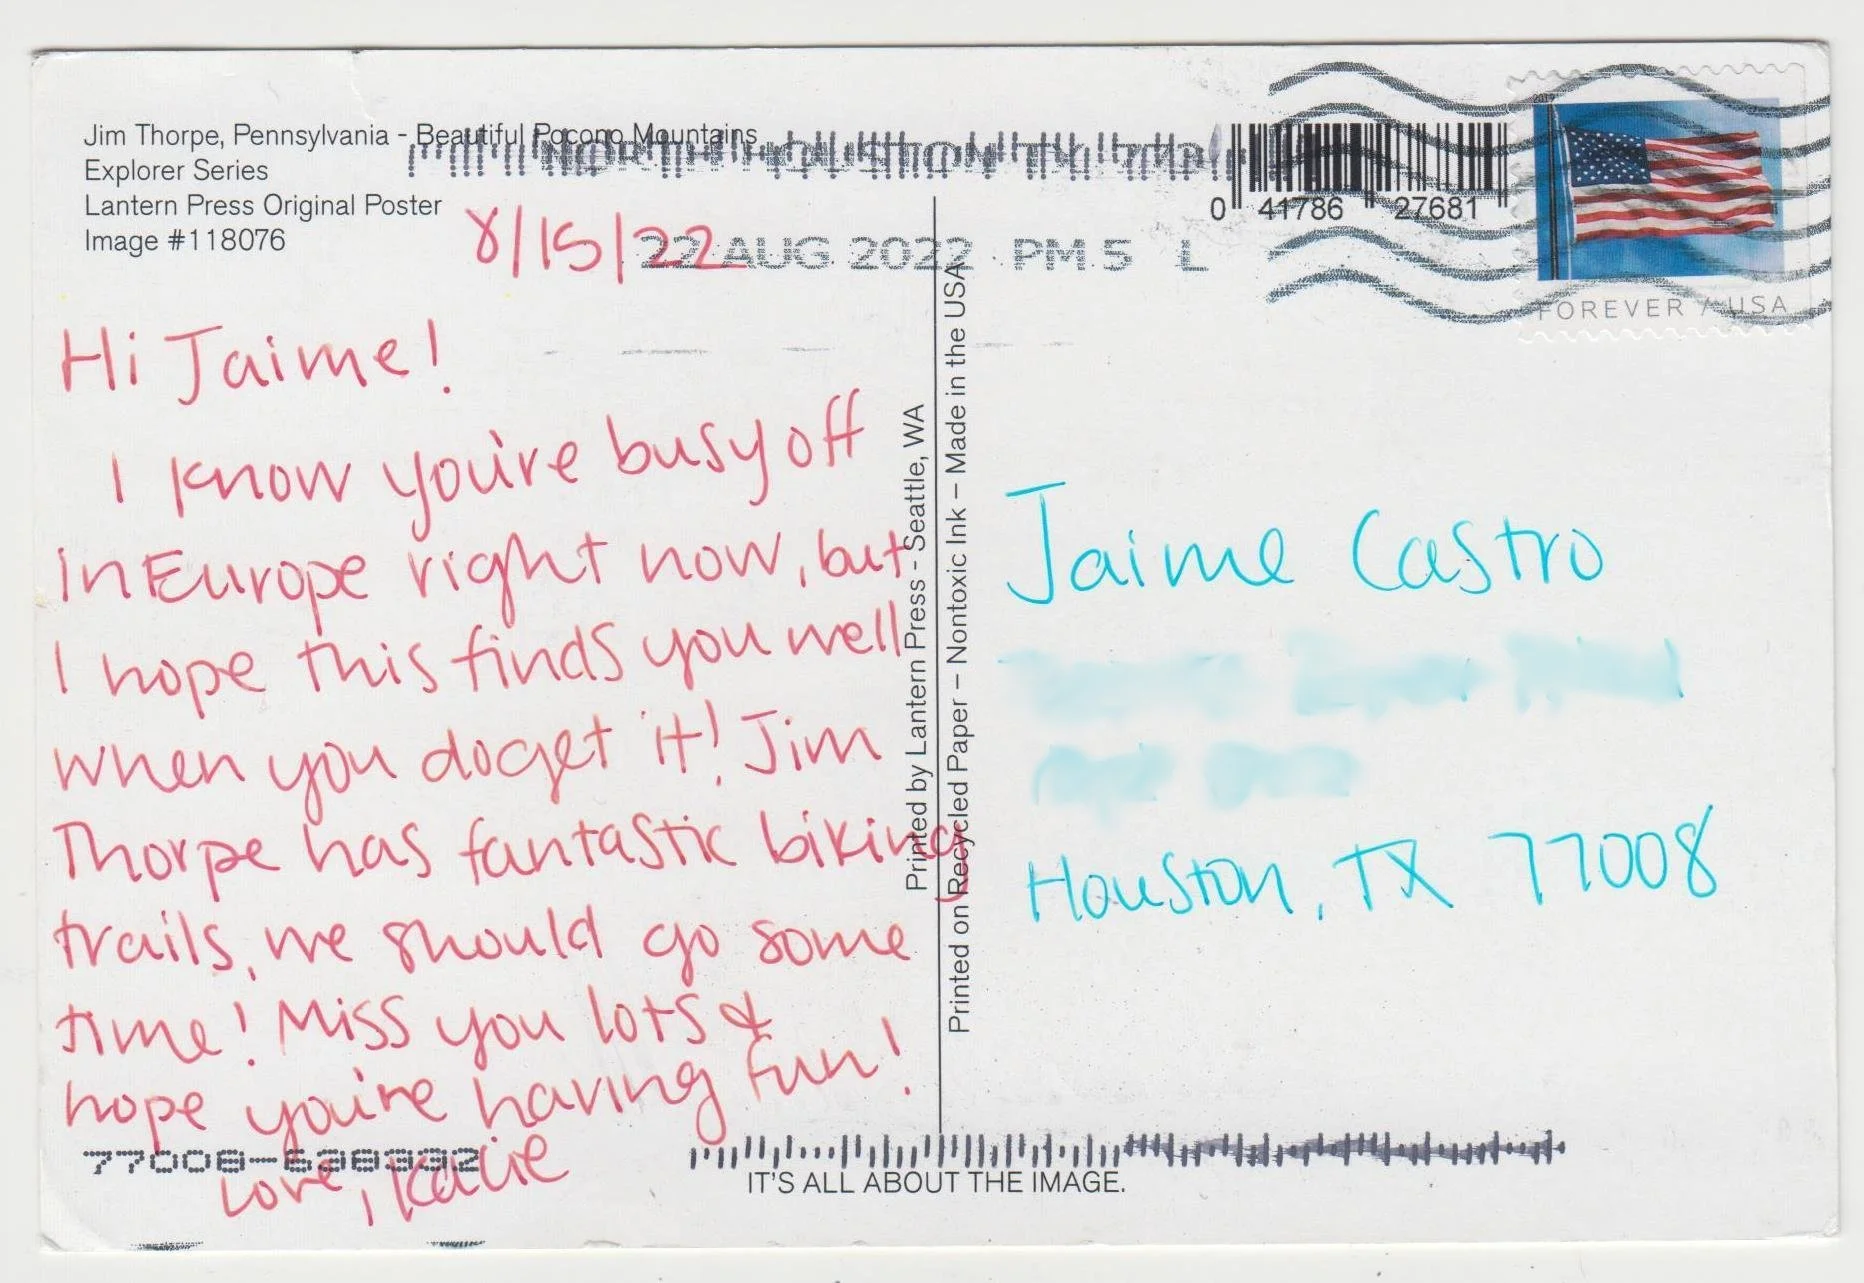 Jim Thorpe, Pennsylvania - Beautiful Pocono Mountains
Explorer Series
Lantern Press Original Poster
Image #118076
NORTH HOUSTON TX 773
22 AUG 2022 PM 5 L
0 41786 27681
FOREVER / USA
8/15/22
Hi Jaime!
I know you're busy off
in Europe right now, but
I hope this finds you well
when you do get it! Jim
Thorpe has fantastic biking
trails, we should go some
time! Miss you lots &
hope you're having fun!
Love, Katie
77008-
Printed by Lantern Press - Seattle, WA
Printed on Recycled Paper – Nontoxic Ink – Made in the USA
Jaime Castro
Houston, TX 77008
IT'S ALL ABOUT THE IMAGE.